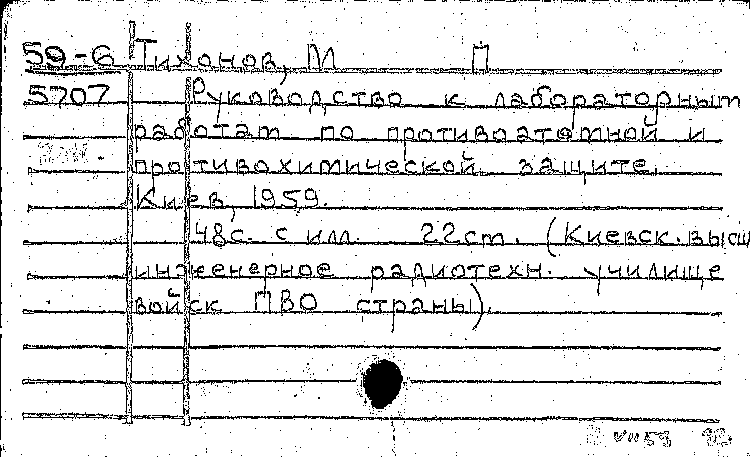 59-6 Тихонов, М П
5707 Руководство к лабораторным
работам по противоатомной и
противохимической защите.
Киев, 1959.
48с. с илл. 22см. (Киевск. высш
инженерное радиотехн. училище
войск ПВО страны).
VII 59